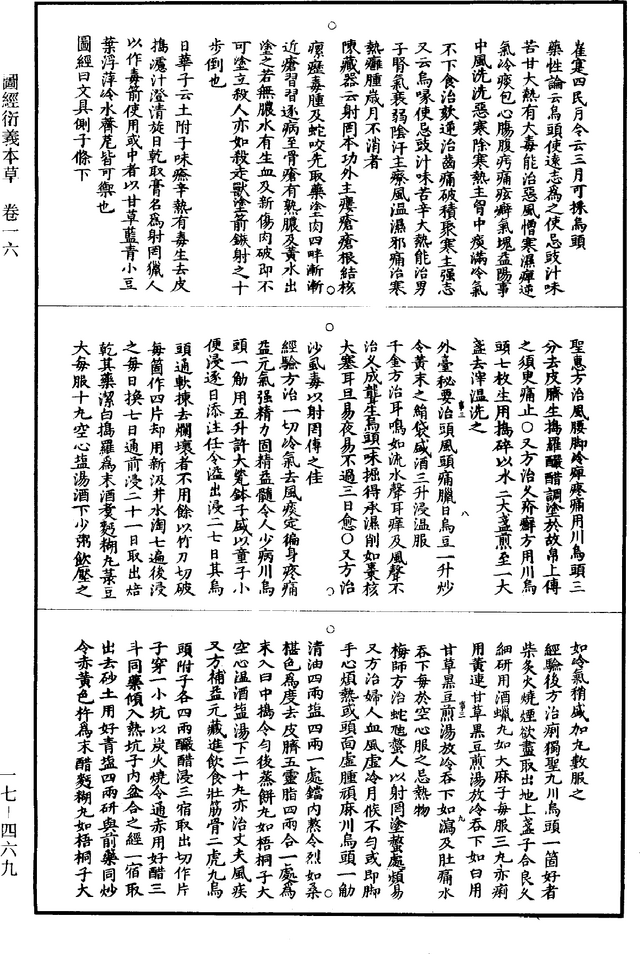 圖經衍義本草　卷一六
一七－四六九
崔寔四民月令云三月可採烏頭
藥性論云烏頭使遠志為之使忌豉汁味
苦甘大熱有大毒能治惡風憎寒濕痺逆
氣冷痰包心腸腹㽲痛痃癖氣塊益陽事
中風洗洗惡寒除寒熱主胷中痰滿冷氣
不下食治欬逆治齒痛破積聚寒主强志
又云烏喙使忌豉汁味苦辛大熱能治男
子腎氣衰弱陰汗主療風溫濕邪痛治寒
熱癰腫歲月不消者
陳藏器云射罔本功外主瘻瘡瘡根結核
瘰癧毒腫及蛇咬先取藥塗肉四畔漸漸
近瘡習習逐病至骨瘡有熱膿及黃水出
塗之若無膿水有生血及新傷肉破即不
可塗立殺人亦如殺走獸塗箭鏃射之十
步倒也
日華子云土附子味㾕辛熱有毒生去皮
搗濾汁澄清旋日乾取膏名為射罔獵人
以作毒箭使用或中者以甘草藍青小豆
葉浮萍冷水薺苨皆可禦也
圖經曰文具側子條下
聖惠方治風腰脚冷痺疼痛用川烏頭三
分去皮臍生搗羅釅醋調塗於故帛上傅
之須臾痛止○又方治久疥癬方用川烏
頭七枚生用搗碎以水二大盞煎至一大
盞去滓溫洗之
外臺秘要治頭風頭痛臘日烏豆一升炒
令黃末之絹袋盛酒三升浸溫服
千金方治耳鳴如流水聲耳痒及風聲不
治久成聾生烏頭味掘得承濕削如棗核
大塞耳旦易夜易不過三日愈○又方治
沙虱毒以射罔傅之佳
經驗方治一切冷氣去風痰定徧身疼痛
益元氣强精力固精益髓令人少病川烏
頭一觔用五升許大瓷鉢子盛以童子小
便浸逐日添注任令溢出浸二七日其烏
頭通軟揀去爛壞者不用餘以竹刀切破
每箇作四片却用新汲井水淘七遍後浸
之每日換七日通前浸二十一日取出焙
乾其藥潔白搗羅為末酒煑麪糊丸菉豆
大每服十丸空心塩湯酒下少粥飲壓之
如冷氣稍盛加丸數服之
經驗後方治痢獨聖丸川烏頭一箇好者
柴炙火燒煙欲盡取出地上盞子合良久
細研用酒蠟丸如大麻子每服三丸赤痢
用黃連甘草黑豆煎湯放冷吞下如白用
甘草黑豆煎湯放冷吞下如瀉及肚痛水
吞下每於空心服之忌熱物
梅師方治蛇虺螫人以射罔塗螫處頻易
又方治婦人血風虛冷月候不勻或即脚
手心煩熱或頭面虛腫頑麻川烏頭一觔
清油四兩塩四兩一處鐺內熬令烈如桑
椹色為度去皮臍五靈脂四兩合一處為
末入臼中搗令勻後蒸餅丸如梧桐子大
空心溫酒塩湯下二十丸亦治丈夫風疾
又方補益元藏進飲食壯筋骨二虎丸烏
頭附子各四兩釅醋浸三宿取出切作片
子穿一小坑以炭火燒令通赤用好醋三
斗同藥傾入熱坑子內盆合之經一宿取
出去砂土用好青塩四兩研與前藥同炒
令赤黃色杵為末醋麪糊丸如梧桐子大